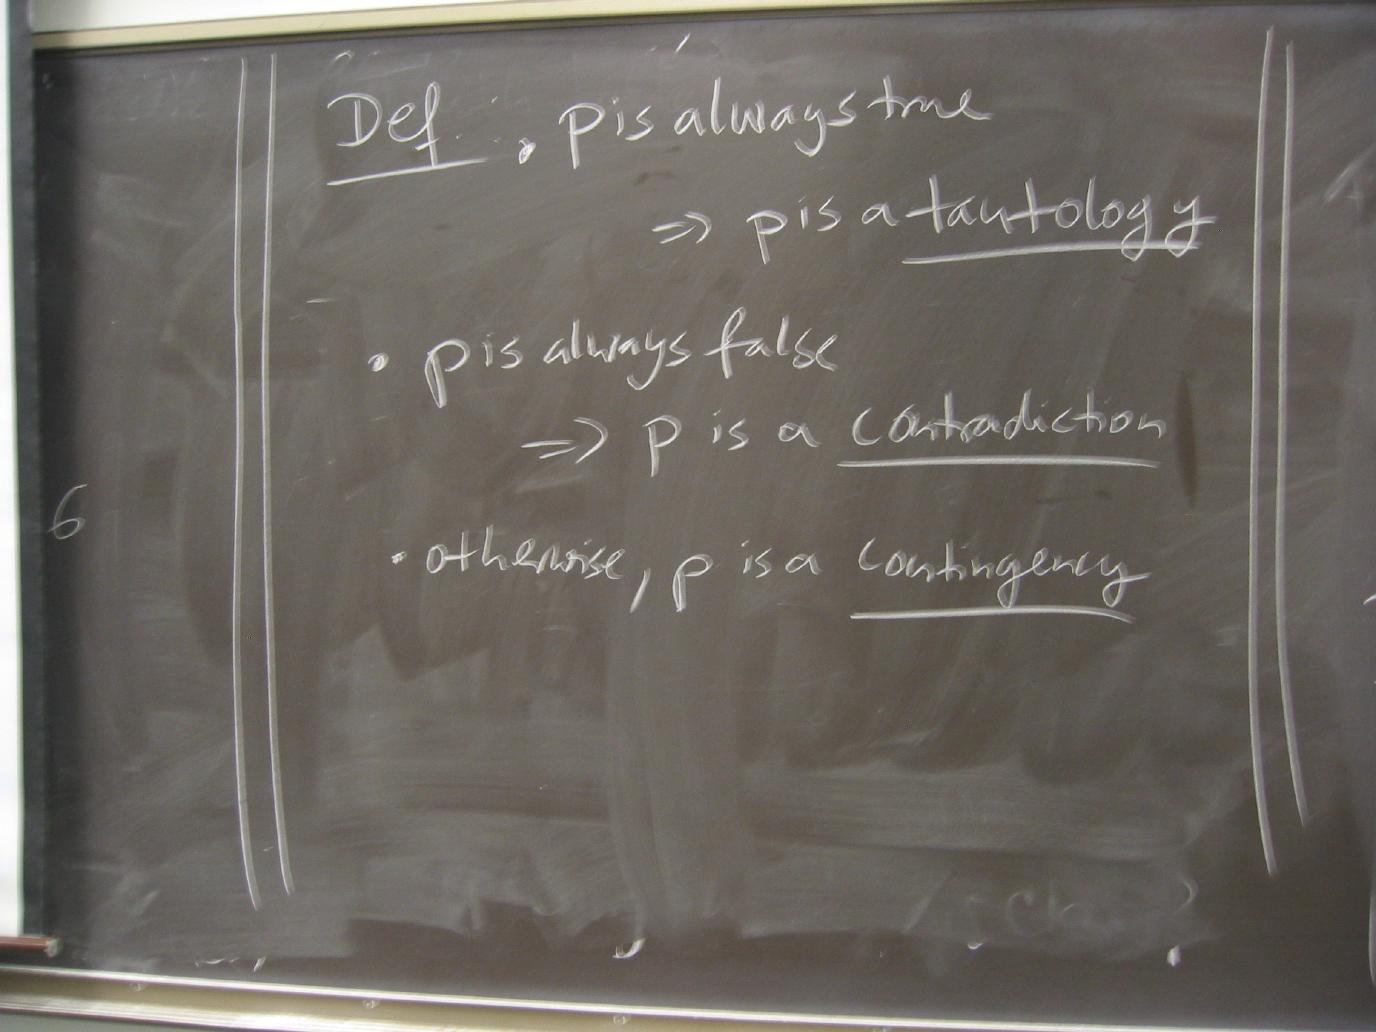 Def. • p is always true
⇒ p is a tautology
• p is always false
⇒ p is a contradiction
6
• otherwise, p is a contingency